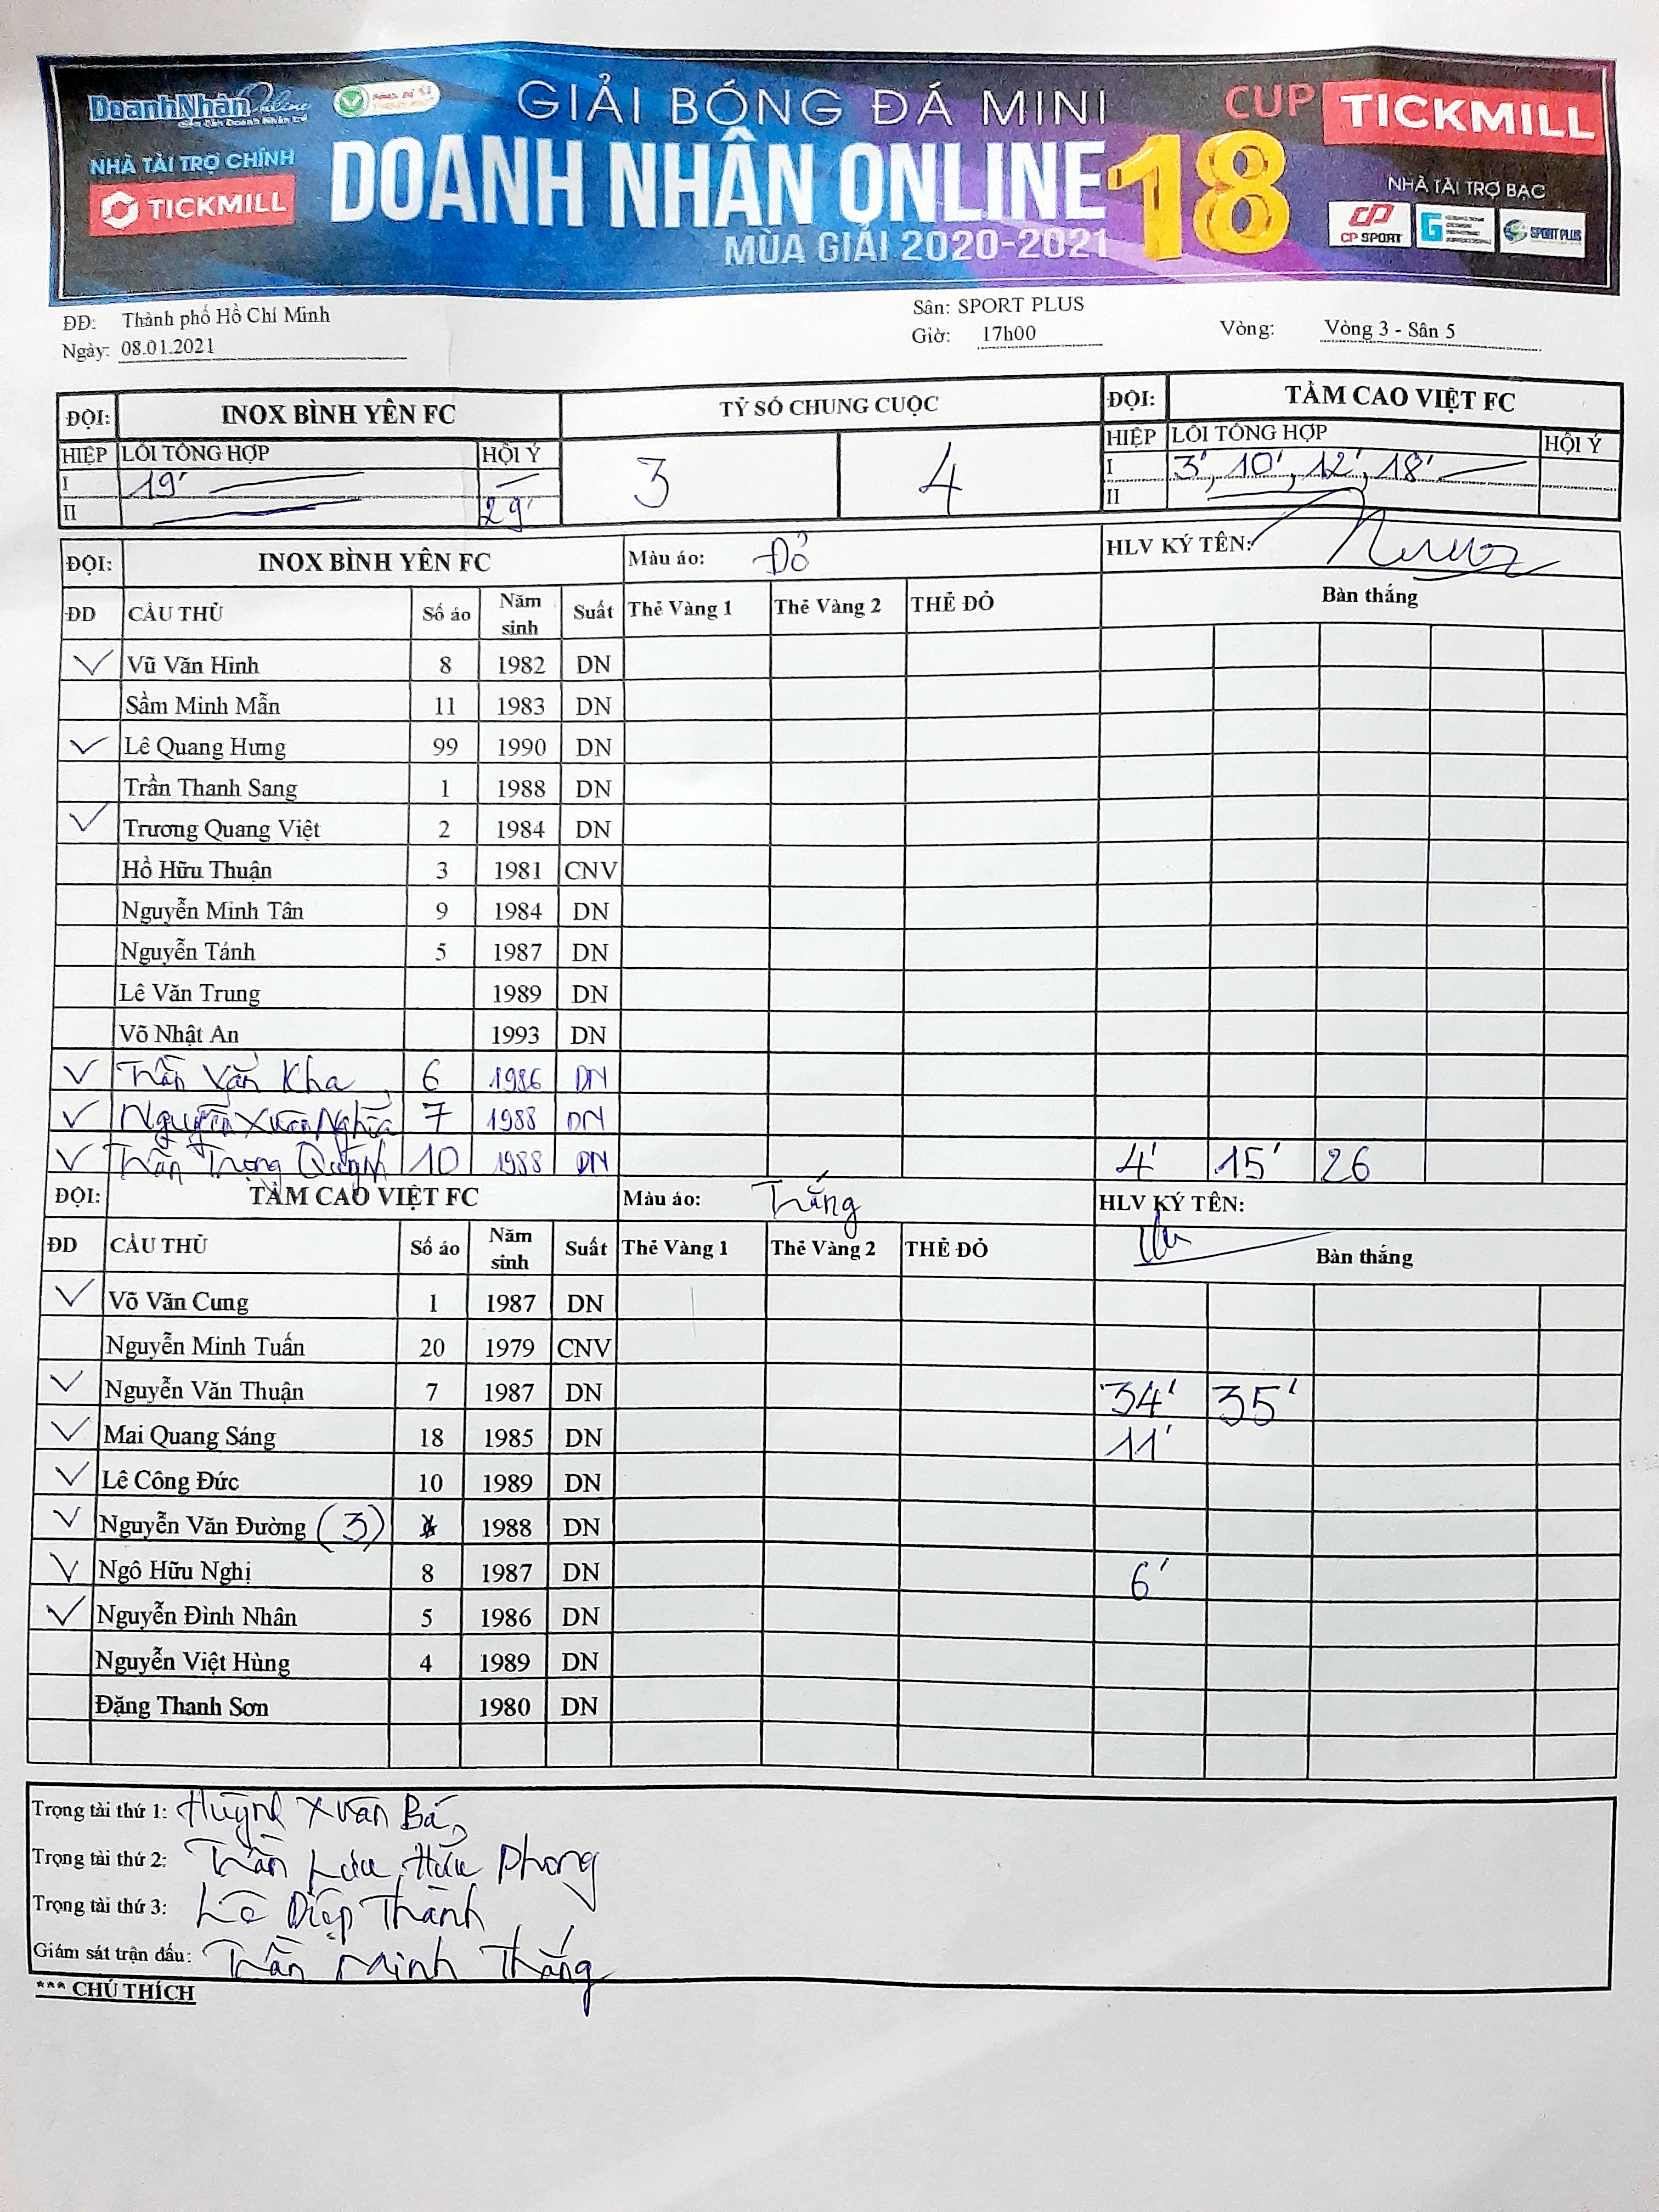 DoanhNhân Online
NHÀ TÀI TRỢ CHÍNH
TICKMILL
GIẢI BÓNG ĐÁ MINI
DOANH NHÂN ONLINE 18
MÙA GIẢI 2020-2021
CUP TICKMILL
NHÀ TÀI TRỢ BẠC
CP SPORT SPORT PLUS
ĐĐ: Thành phố Hồ Chí Minh Sân: SPORT PLUS
Ngày: 08.01.2021 Giờ: 17h00 Vòng: Vòng 3 - Sân 5
ĐỘI: INOX BÌNH YÊN FC TỶ SỐ CHUNG CUỘC ĐỘI: TẦM CAO VIỆT FC
HIỆP LỖI TỔNG HỢP HỘI Ý 3 4 HIỆP LỖI TỔNG HỢP HỘI Ý
I 19' I 3', 10', 12', 18'
II 29' II
ĐỘI: INOX BÌNH YÊN FC Màu áo: Đỏ HLV KÝ TÊN:
ĐD CẦU THỦ Số áo Năm sinh Suất Thẻ Vàng 1 Thẻ Vàng 2 THẺ ĐỎ Bàn thắng
Vũ Văn Hinh 8 1982 DN
Sầm Minh Mẫn 11 1983 DN
Lê Quang Hưng 99 1990 DN
Trần Thanh Sang 1 1988 DN
Trương Quang Việt 2 1984 DN
Hồ Hữu Thuận 3 1981 CNV
Nguyễn Minh Tân 9 1984 DN
Nguyễn Tánh 5 1987 DN
Lê Văn Trung 1989 DN
Võ Nhật An 1993 DN
Trần Văn Kha 6 1986 DN
Nguyễn Xuân Nghĩa 7 1988 DN
Trần Trọng Quỳnh 10 1988 DN 4' 15' 26
ĐỘI: TẦM CAO VIỆT FC Màu áo: Trắng HLV KÝ TÊN:
ĐD CẦU THỦ Số áo Năm sinh Suất Thẻ Vàng 1 Thẻ Vàng 2 THẺ ĐỎ Bàn thắng
Võ Văn Cung 1 1987 DN
Nguyễn Minh Tuấn 20 1979 CNV
Nguyễn Văn Thuận 7 1987 DN 34' 35'
Mai Quang Sáng 18 1985 DN 11'
Lê Công Đức 10 1989 DN
Nguyễn Văn Đường (3) 1988 DN
Ngô Hữu Nghị 8 1987 DN 6'
Nguyễn Đình Nhân 5 1986 DN
Nguyễn Việt Hùng 4 1989 DN
Đặng Thanh Sơn 1980 DN
Trọng tài thứ 1: Huỳnh Xuân Bá
Trọng tài thứ 2: Trần Lưu Hữu Phong
Trọng tài thứ 3: Lê Diệp Thành
Giám sát trận đấu: Trần Minh Thắng
*** CHÚ THÍCH